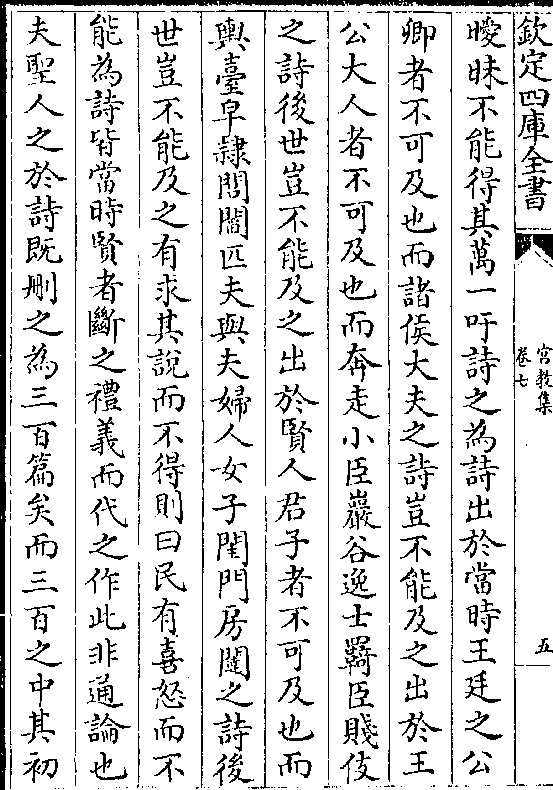 欽定四庫全書
宫教集
卷七
五
曖昧不能得其萬一吁詩之為詩出於當時王廷之公
卿者不可及也而諸侯大夫之詩豈不能及之出於王
公大人者不可及也而奔走小臣巖谷逸士羇臣賤伎
之詩後世豈不能及之出於賢人君子者不可及也而
輿臺皁隷閭閻匹夫與夫婦人女子閨門房闥之詩後
世豈不能及之有求其說而不得則曰民有喜怒而不
能為詩皆當時賢者斷之禮義而代之作此非通論也
夫聖人之於詩既刪之為三百篇矣而三百之中其初